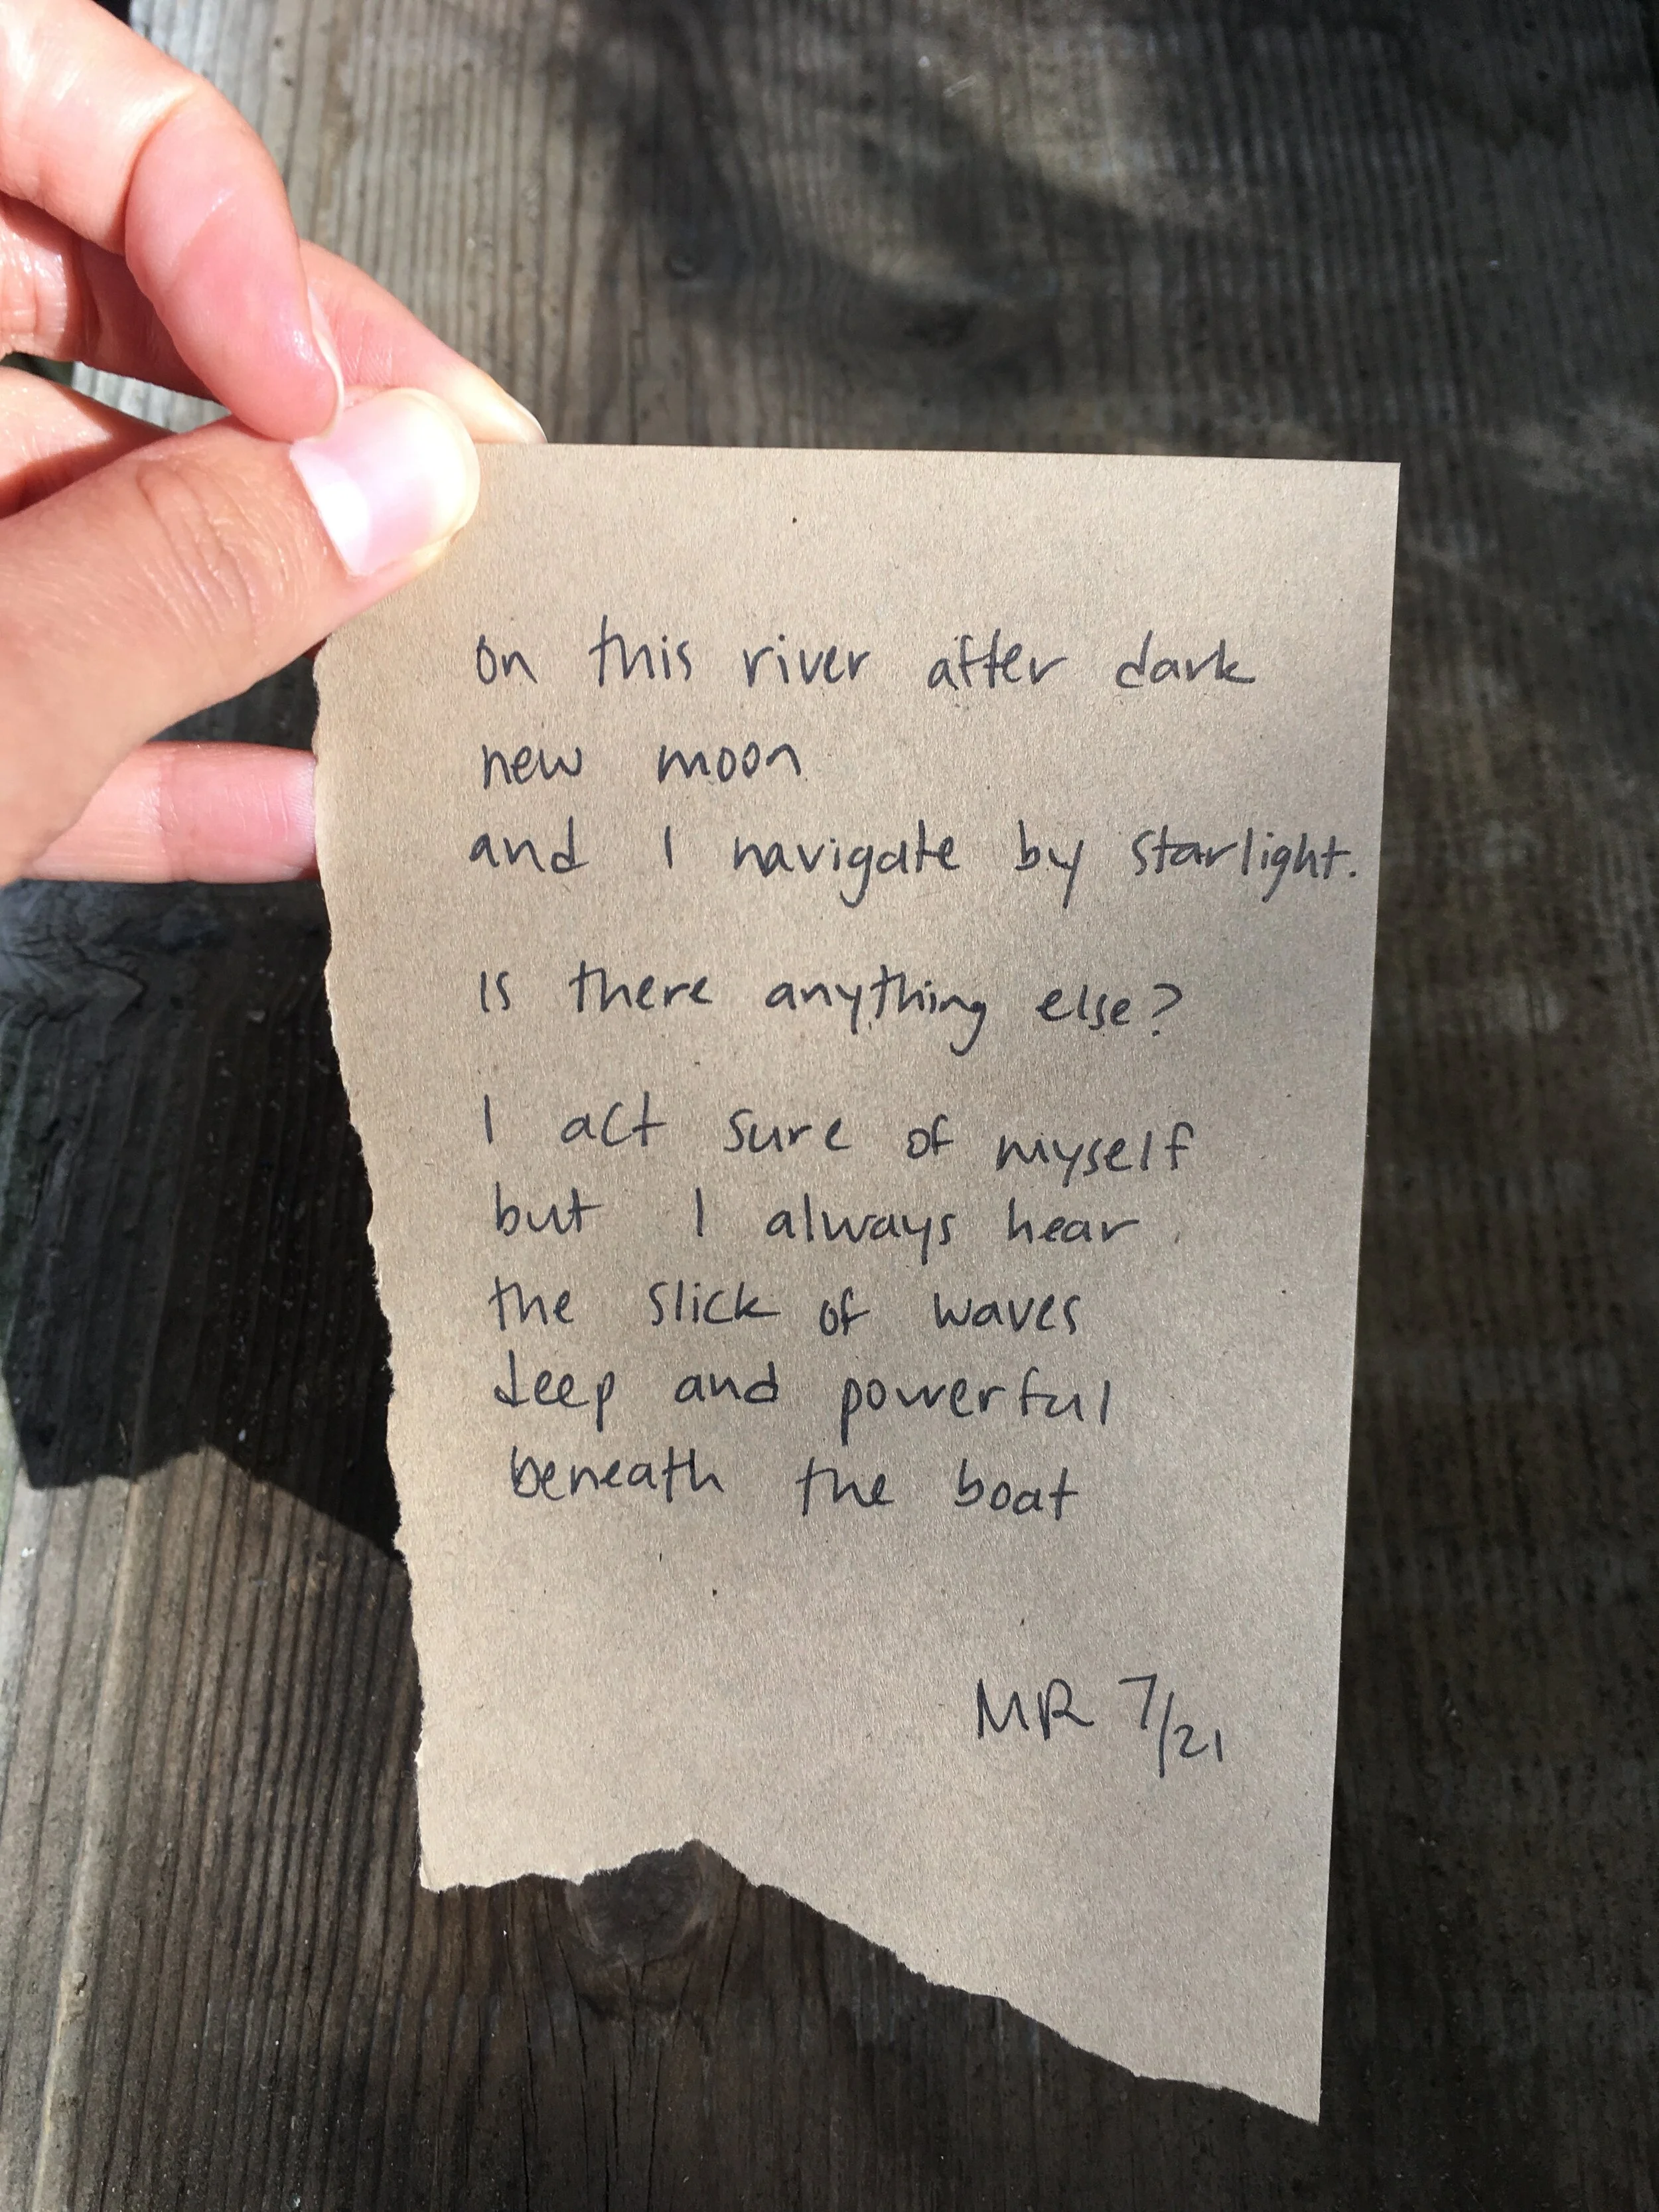 on this river after dark
new moon
and I navigate by starlight.
Is there anything else?
I act sure of myself
but I always hear
the slick of waves
deep and powerful
beneath the boat
MR 7/21